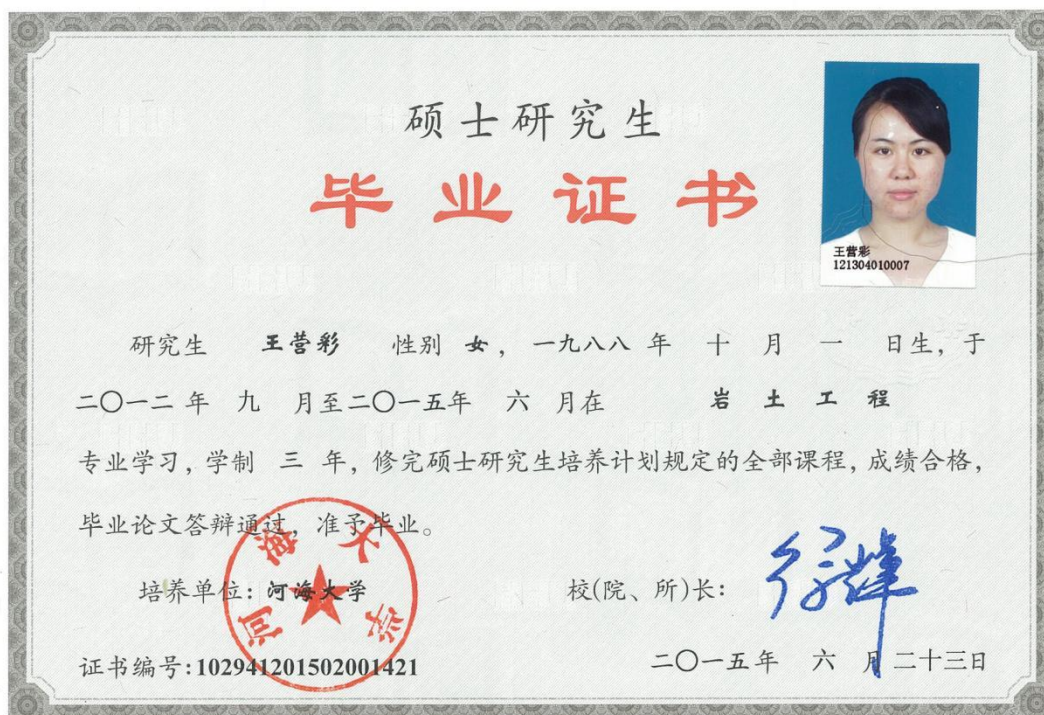 硕士研究生
毕业证书
王营彩
121304010007
研究生 王营彩 性别 女，一九八八 年 十 月 一 日生，于
二〇一二 年 九 月至二〇一五年 六 月在 岩土工程
专业学习，学制 三 年，修完硕士研究生培养计划规定的全部课程，成绩合格，
毕业论文答辩通过，准予毕业。
培养单位：河海大学
校(院、所)长：
河海大学
证书编号：102941201502001421
二〇一五年 六 月二十三日